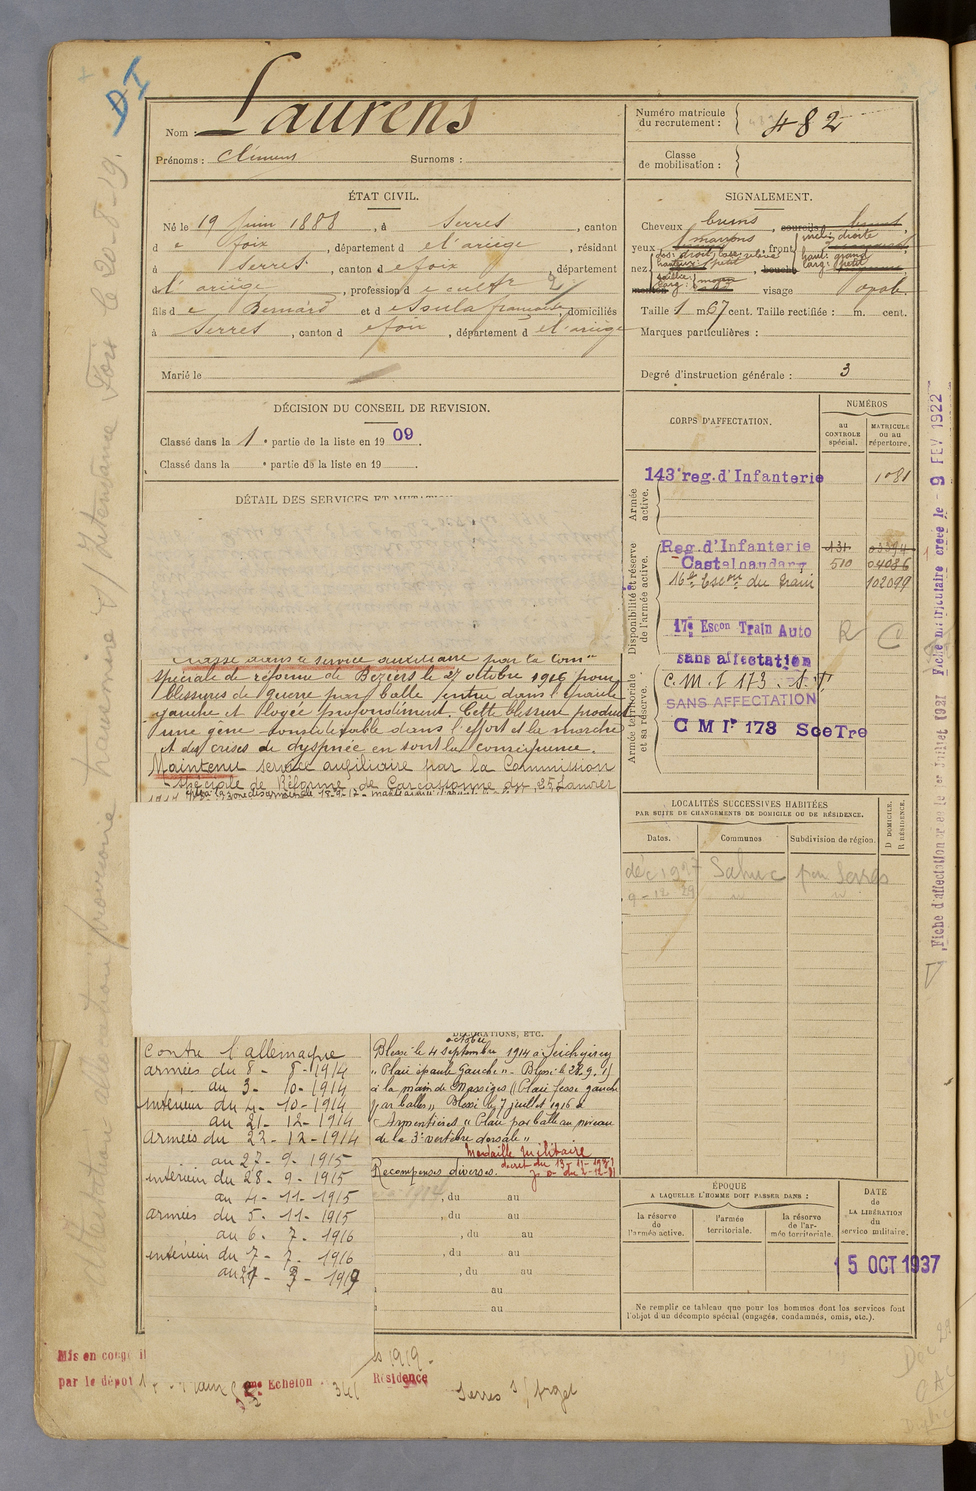 DI
Nom : Laurens
Prénoms : Clémens Surnoms :
Numéro matricule du recrutement : 482
Classe de mobilisation :
ÉTAT CIVIL.
Né le 19 Juin 1888, à Serres, canton
d e foix, département d e l'ariège, résidant
à Serres, canton d e foix, département
d e l'ariège, profession d e cultr
fils d e Bernard et d e Soula française, domiciliés
à Serres, canton d e foix, département d e l'ariège
Marié le
SIGNALEMENT.
Cheveux bruns, sourcils
yeux marrons, front incl: droite
haut: grand
larg: petit
nez
visage oval.
Taille 1 m. 67 cent. Taille rectifiée : m. cent.
Marques particulières :
Degré d'instruction générale : 3
DÉCISION DU CONSEIL DE REVISION.
Classé dans la 1e partie de la liste en 1909.
Classé dans la e partie de la liste en 19
DÉTAIL DES SERVICES ET MUTATIONS
Classé dans le service auxiliaire par la Comon
spéciale de réforme de Béziers le 27 octobre 1916 pour
blessures de guerre par balle entrée dans l'épaule
gauche et logée profondément. Cette blessure produit
une gêne considérable dans l'effort et la marche
et des crises de dyspnée en sont la conséquence.
Maintenu service auxiliaire par la Commission
spéciale de Réforme de Carcassonne du 25 Janvier
CORPS D'AFFECTATION.
NUMÉROS
au CONTROLE spécial.
MATRICULE ou au répertoire.
Armée active.
143e reg. d'Infanterie 1081
Disponibilité et réserve de l'armée active.
Reg. d'Infanterie 131
Castelnaudary 510 04086
16e Escon du train 102099
17e Escon Train Auto R C
sans affectation
Armée territoriale et sa réserve.
C. M. I 173
SANS AFFECTATION
C M Ie 173 SceTre
LOCALITÉS SUCCESSIVES HABITÉES
PAR SUITE DE CHANGEMENTS DE DOMICILE OU DE RÉSIDENCE.
Dates. Communes Subdivision de région. D DOMICILE. R RÉSIDENCE.
déc 1927 Sahuc par Serres
9-12-29
DÉCORATIONS, ETC.
Contre l'allemagne
armées du 8 - 8 - 1914
au 3 - 10 - 1914
intérieur du 4 - 10 - 1914
au 21 - 12 - 1914
Armées du 22 - 12 - 1914
au 27 - 9 - 1915
intérieur du 28 - 9 - 1915
au 4 - 11 - 1915
armées du 5 - 11 - 1915
au 6 - 7 - 1916
intérieur du 7 - 7 - 1916
octobre
Blessé le 4 septembre 1914 à Seicheprey
"Plaie épaule Gauche" - Blessé le
à la main de Massiges "Plaie fesse gauche
par balles" Blessé le 7 juillet 1916 à
Armentières "Plaie par balle au niveau
de la 3e vertèbre dorsale"
Médaille militaire
Récompenses diverses.
, du au
, du au
, du au
, du au
, du au
au
au
ÉPOQUE
A LAQUELLE L'HOMME DOIT PASSER DANS :
la réserve de l'armée active.
l'armée territoriale.
la réserve de l'armée territoriale.
DATE
de
LA LIBÉRATION
du
service militaire.
15 OCT 1937
Ne remplir ce tableau que pour les hommes dont les services font
l'objet d'un décompte spécial (engagés, condamnés, omis, etc.).
Mis en congé il
par le dépôt
Echelon
1919
Résidence
Serres s/ Arget
Fiche matriculaire créée le - 9 FEV 1922